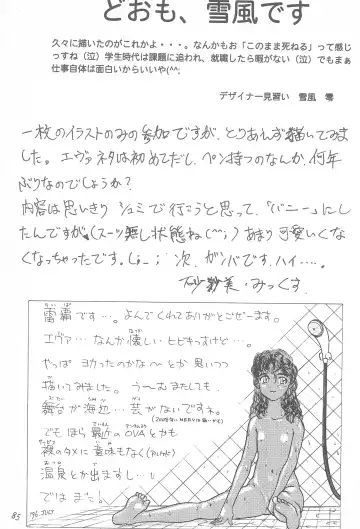 どおも、雪風です
久々に描いたのがこれかよ・・・。なんかもお「このまま死ねる」って感じ
っすね（泣）学生時代は課題に追われ、就職したら暇がない（泣）でもまぁ
仕事自体は面白いからいいや(^^;
デザイナー見習い　雪風　零
一枚のイラストのみの参加ですが、とりあえず描いてみま
した。エヴァネタは初めてだし、ペン持つのなんか、何年
ぶりなのでしょうか？
内容は思いきりシュミで行こうと思って、「バニー」にし
たんですが。(スーツ無し状態ね(^^;) あまり可愛いくな
くなっちゃったです。(;_;) 次、ガンバです。ハイ…。
砂紗美・みっくす
雷覇です…。よんでくれてありがとごぜーます。
エヴァ…なんか懐しいヒビキっすけど…。
やっぱヨカったのかな〜とか思いつつ
描いてみました。う〜むまたしても
舞台が海辺…芸がないですネ。
でもほら最近のOVAとかも
裸のタメに意味もなく
温泉とか出ますし…。
ではまた。
'96.JULY
85